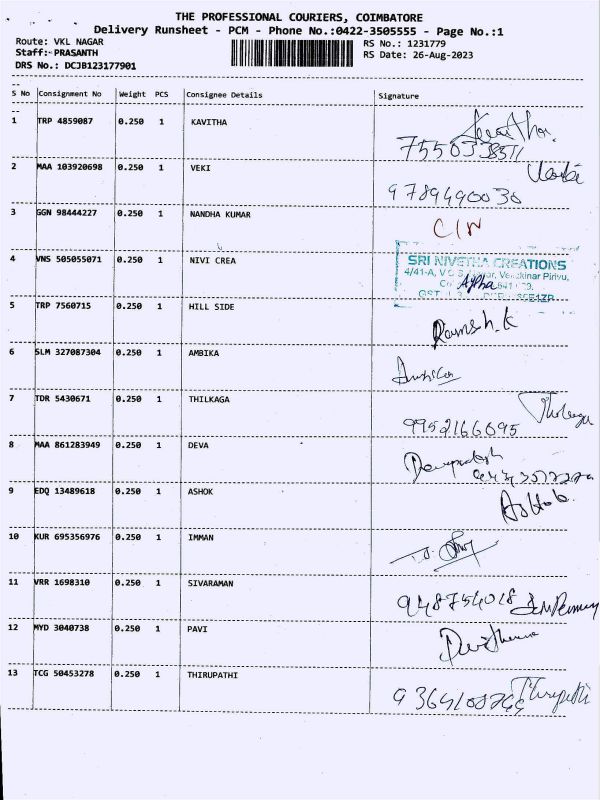 THE PROFESSIONAL COURIERS, COIMBATORE
Delivery Runsheet - PCM - Phone No.:0422-3505555 - Page No.:1
Route: VKL NAGAR RS No.: 1231779
Staff: PRASANTH RS Date: 26-Aug-2023
DRS No.: DCJB123177901
S No Consignment No Weight PCS Consignee Details Signature
1 TRP 4859087 0.250 1 KAVITHA
2 MAA 103920698 0.250 1 VEKI
9789490030
3 GGN 98444227 0.250 1 NANDHA KUMAR
4 VNS 505055071 0.250 1 NIVI CREA
SRI NIVETHA CREATIONS
4/41-A, Pirivu,
5 TRP 7560715 0.250 1 HILL SIDE
Ramesh.K
6 SLM 327087304 0.250 1 AMBIKA
7 TDR 5430671 0.250 1 THILKAGA
9952166095
8 MAA 861283949 0.250 1 DEVA
9 EDQ 13489618 0.250 1 ASHOK
10 KUR 695356976 0.250 1 IMMAN
11 VRR 1698310 0.250 1 SIVARAMAN
12 MYD 3040738 0.250 1 PAVI
13 TCG 50453278 0.250 1 THIRUPATHI
Thirupathi